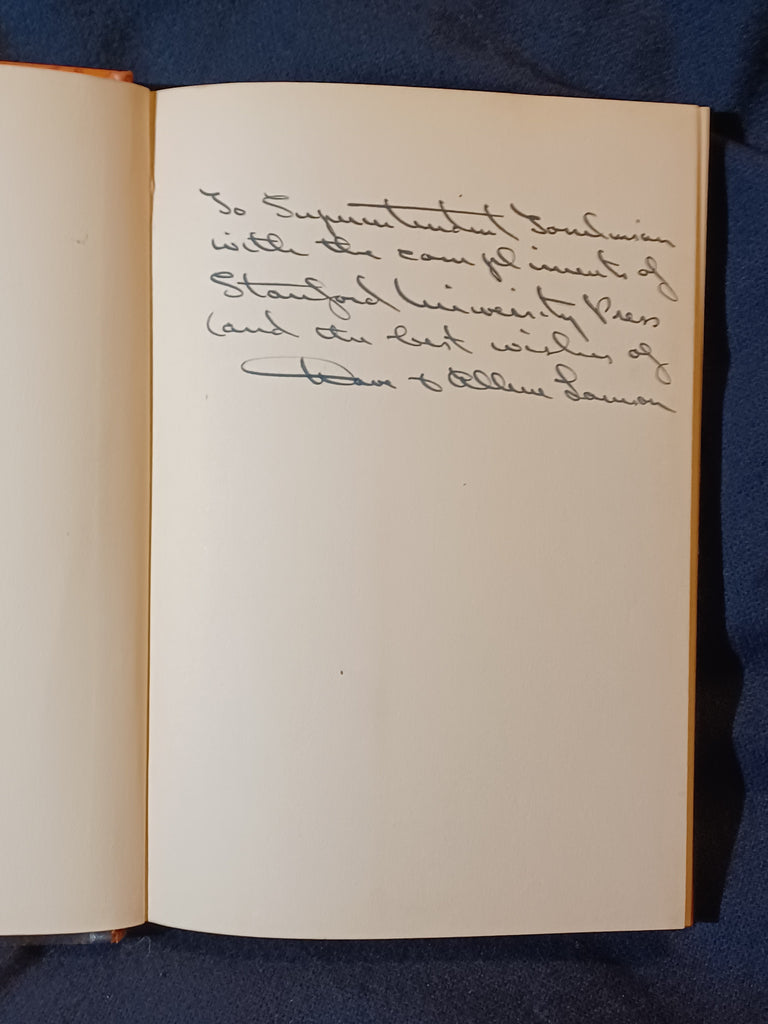 To Superintendent Tomlinson
with the compliments of
Stanford University Press
(and the best wishes of
Dave & Allene Lamson